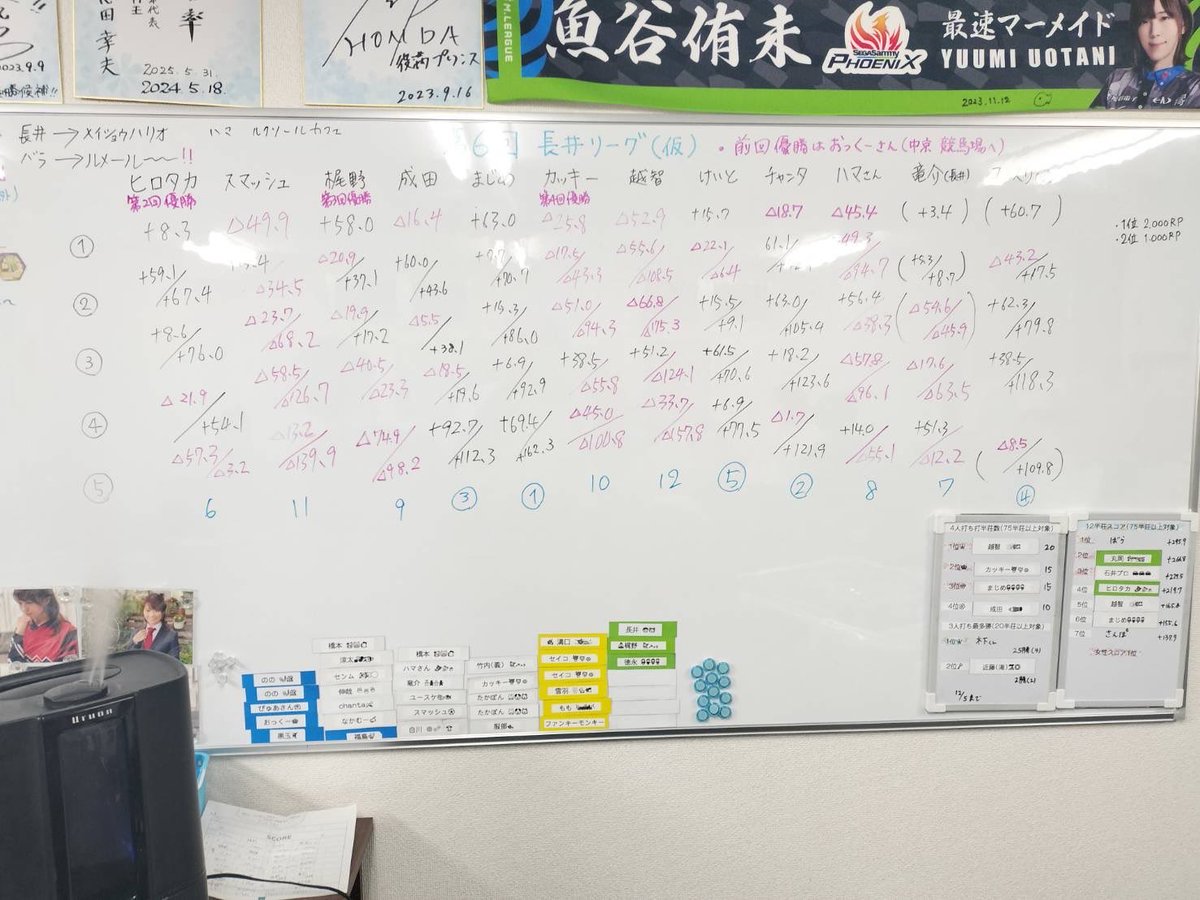 2023.9.9
田幸夫
2025.5.31
2024 5.18.
HONDA
2023.9.16
M.LEAGUE
魚谷侑未
SEGASammy
PHOENIX
最速マーメイド
YUUMI UOTANI
2023.11.12
長井→メイショウハリオ
バラ→ルメール〜〜!!
第6回 長井リーグ(仮)
・前回優勝はおっくーさん(中京競馬場へ)
・1位 2,000RP
・2位 1,000RP
ヒロタカ スマッシュ 梶野 成田 まじめ カッキー 越智 けいと チャンタ ハマさん 竜介(長井)
第2回優勝 第3回優勝 第4回優勝
+8.3 △49.9 +58.0 △16.4 +63.0 △25.8 △52.9 +15.7 △18.7 △45.4 (+3.4) (+60.7)
①
+59.1/+67.4 △34.5 △20.9/+37.1 +60.0/+43.6 +70.7 △17.5/△43.3 △55.6/△108.5 △22.1/△6.4 61.1 △49.3/△94.7 (+5.3/+8.7) △43.2/+17.5
②
+8.6/+76.0 △23.7/△68.2 △19.9/+17.2 △5.5/+38.1 +15.3/+86.0 △51.0/△94.3 △66.8/△175.3 +15.5/+9.1 +63.0/+105.4 +56.4/△38.3 (△54.6/△45.9) +62.3/+79.8
③
△21.9/+54.1 △58.5/△126.7 △40.5/△23.3 △18.5/+19.6 +6.9/+92.9 +38.5/△55.8 +51.2/△124.1 +61.5/+70.6 +18.2/+123.6 △57.8/△96.1 △17.6/△63.5 +38.5/+118.3
④
△57.3/△3.2 △13.2/△139.9 △74.9/△98.2 +92.7/+112.3 +69.4/+162.3 △45.0/△100.8 △33.7/△157.8 +6.9/+77.5 △1.7/+121.9 +14.0/△55.1 +51.3/△12.2 (△8.5/+109.8)
⑤
6 11 9 ③ ① 10 12 ⑤ ② 8 7 ④
4人打ち打半荘数(75半荘以上対象)
1位 越智 20
2位 カッキー 15
3位 まじめ 15
4位 成田 10
3人打ち最多勝(20半荘以上対象)
2位 近藤(滝)
12/5まで
12半荘スコア(75半荘以上対象)
1位 ばら
2位 丸岡
3位 石井プロ
4位 ヒロタカ +219.7
5位 越智
6位 まじめ +155.6
7位 さんぽ
女性スコア1位
のの
のの
ぴゅあさん
おっくー
黒玉
橋本
涼太
センム
伸哉
chanta
なかむー
福島
橋本
ハマさん
竜介
ユースケ
スマッシュ
白川
竹内(義)
カッキー
たかぽん
たかぽん
服部
溝口
セイコ
セイコ
雪羽
もも
ファンキーモンキー
長井
梶野
徳永
SCORE